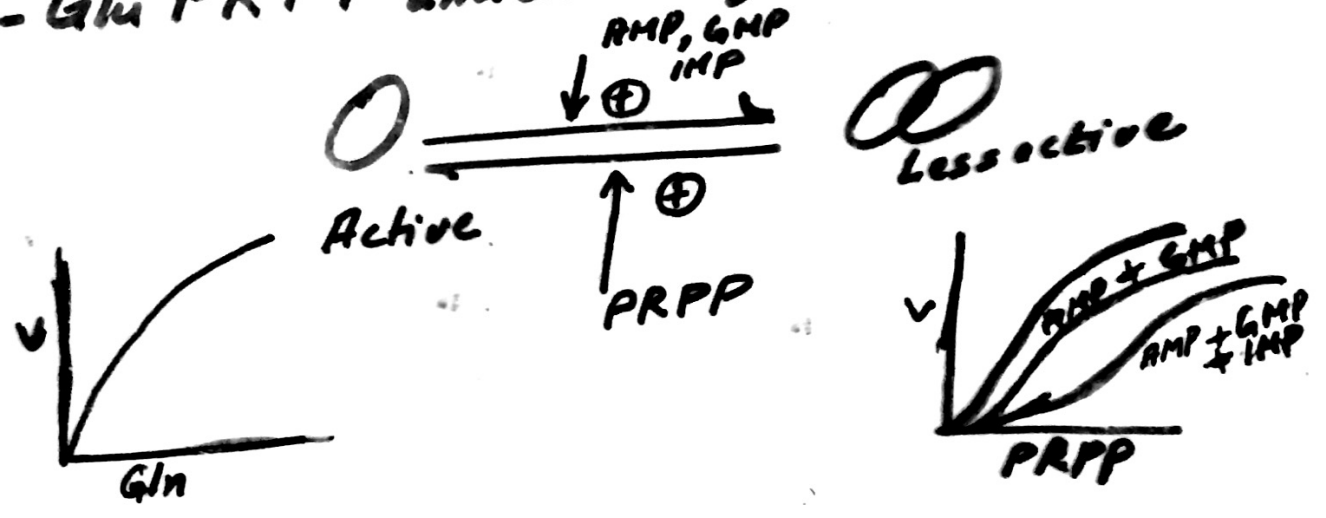 - Glu PRPP
AMP, GMP
IMP
⊕
Less active
Active
⊕
PRPP
V
Gln
V
AMP + GMP
AMP + GMP
+ IMP
PRPP